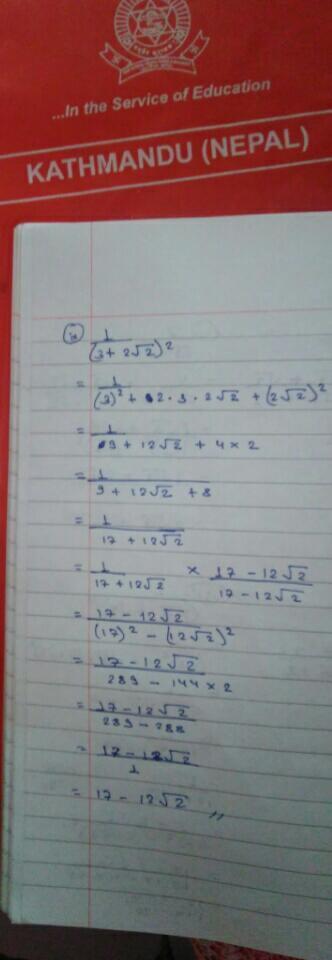 ...In the Service of Education
KATHMANDU (NEPAL)
1/(3 + 2√2)²
= 1/((3)² + 2 · 3 · 2√2 + (2√2)²)
= 1/(9 + 12√2 + 4 × 2)
= 1/(9 + 12√2 + 8)
= 1/(17 + 12√2)
= 1/(17 + 12√2) × (17 - 12√2)/(17 - 12√2)
= (17 - 12√2)/((17)² - (12√2)²)
= (17 - 12√2)/(289 - 144 × 2)
= (17 - 12√2)/(289 - 288)
= (17 - 12√2)/1
= 17 - 12√2 //